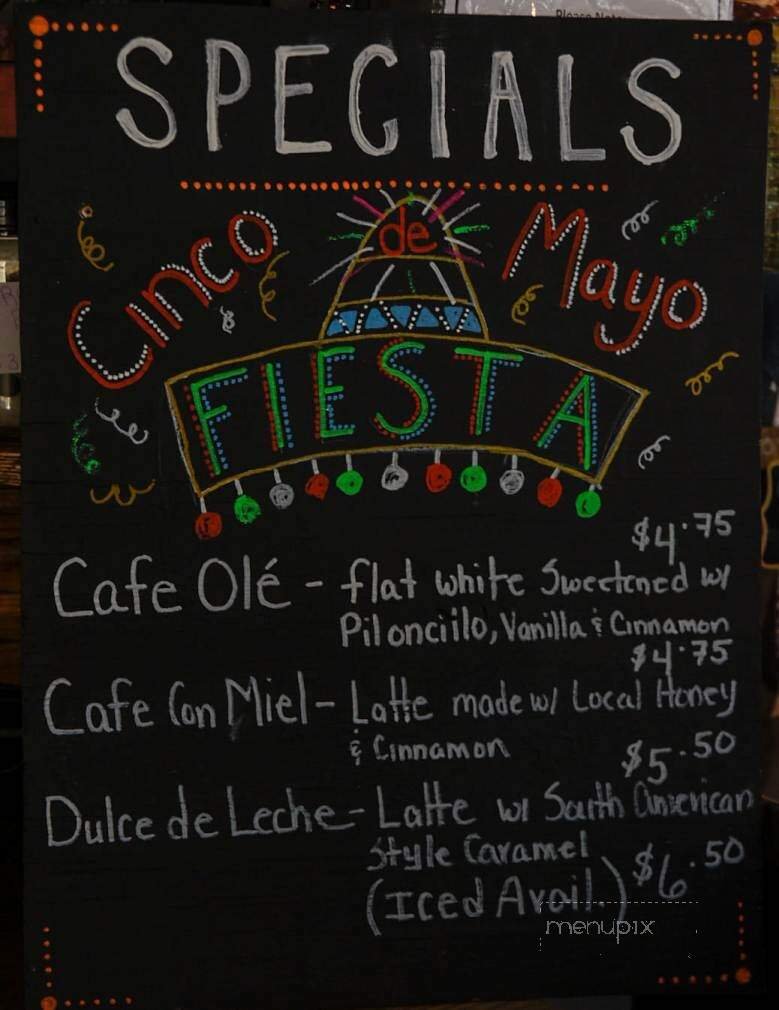 Please Note
SPECIALS
Cinco de Mayo
FIESTA
$4.75
Cafe Olé - flat white Sweetened w/
Pilonciilo, Vanilla & Cinnamon
$4.75
Cafe Con Miel - Latte made w/ Local Honey
& Cinnamon
$5.50
Dulce de Leche - Latte w/ South American
Style Caramel
(Iced Avail.) $6.50
menupix